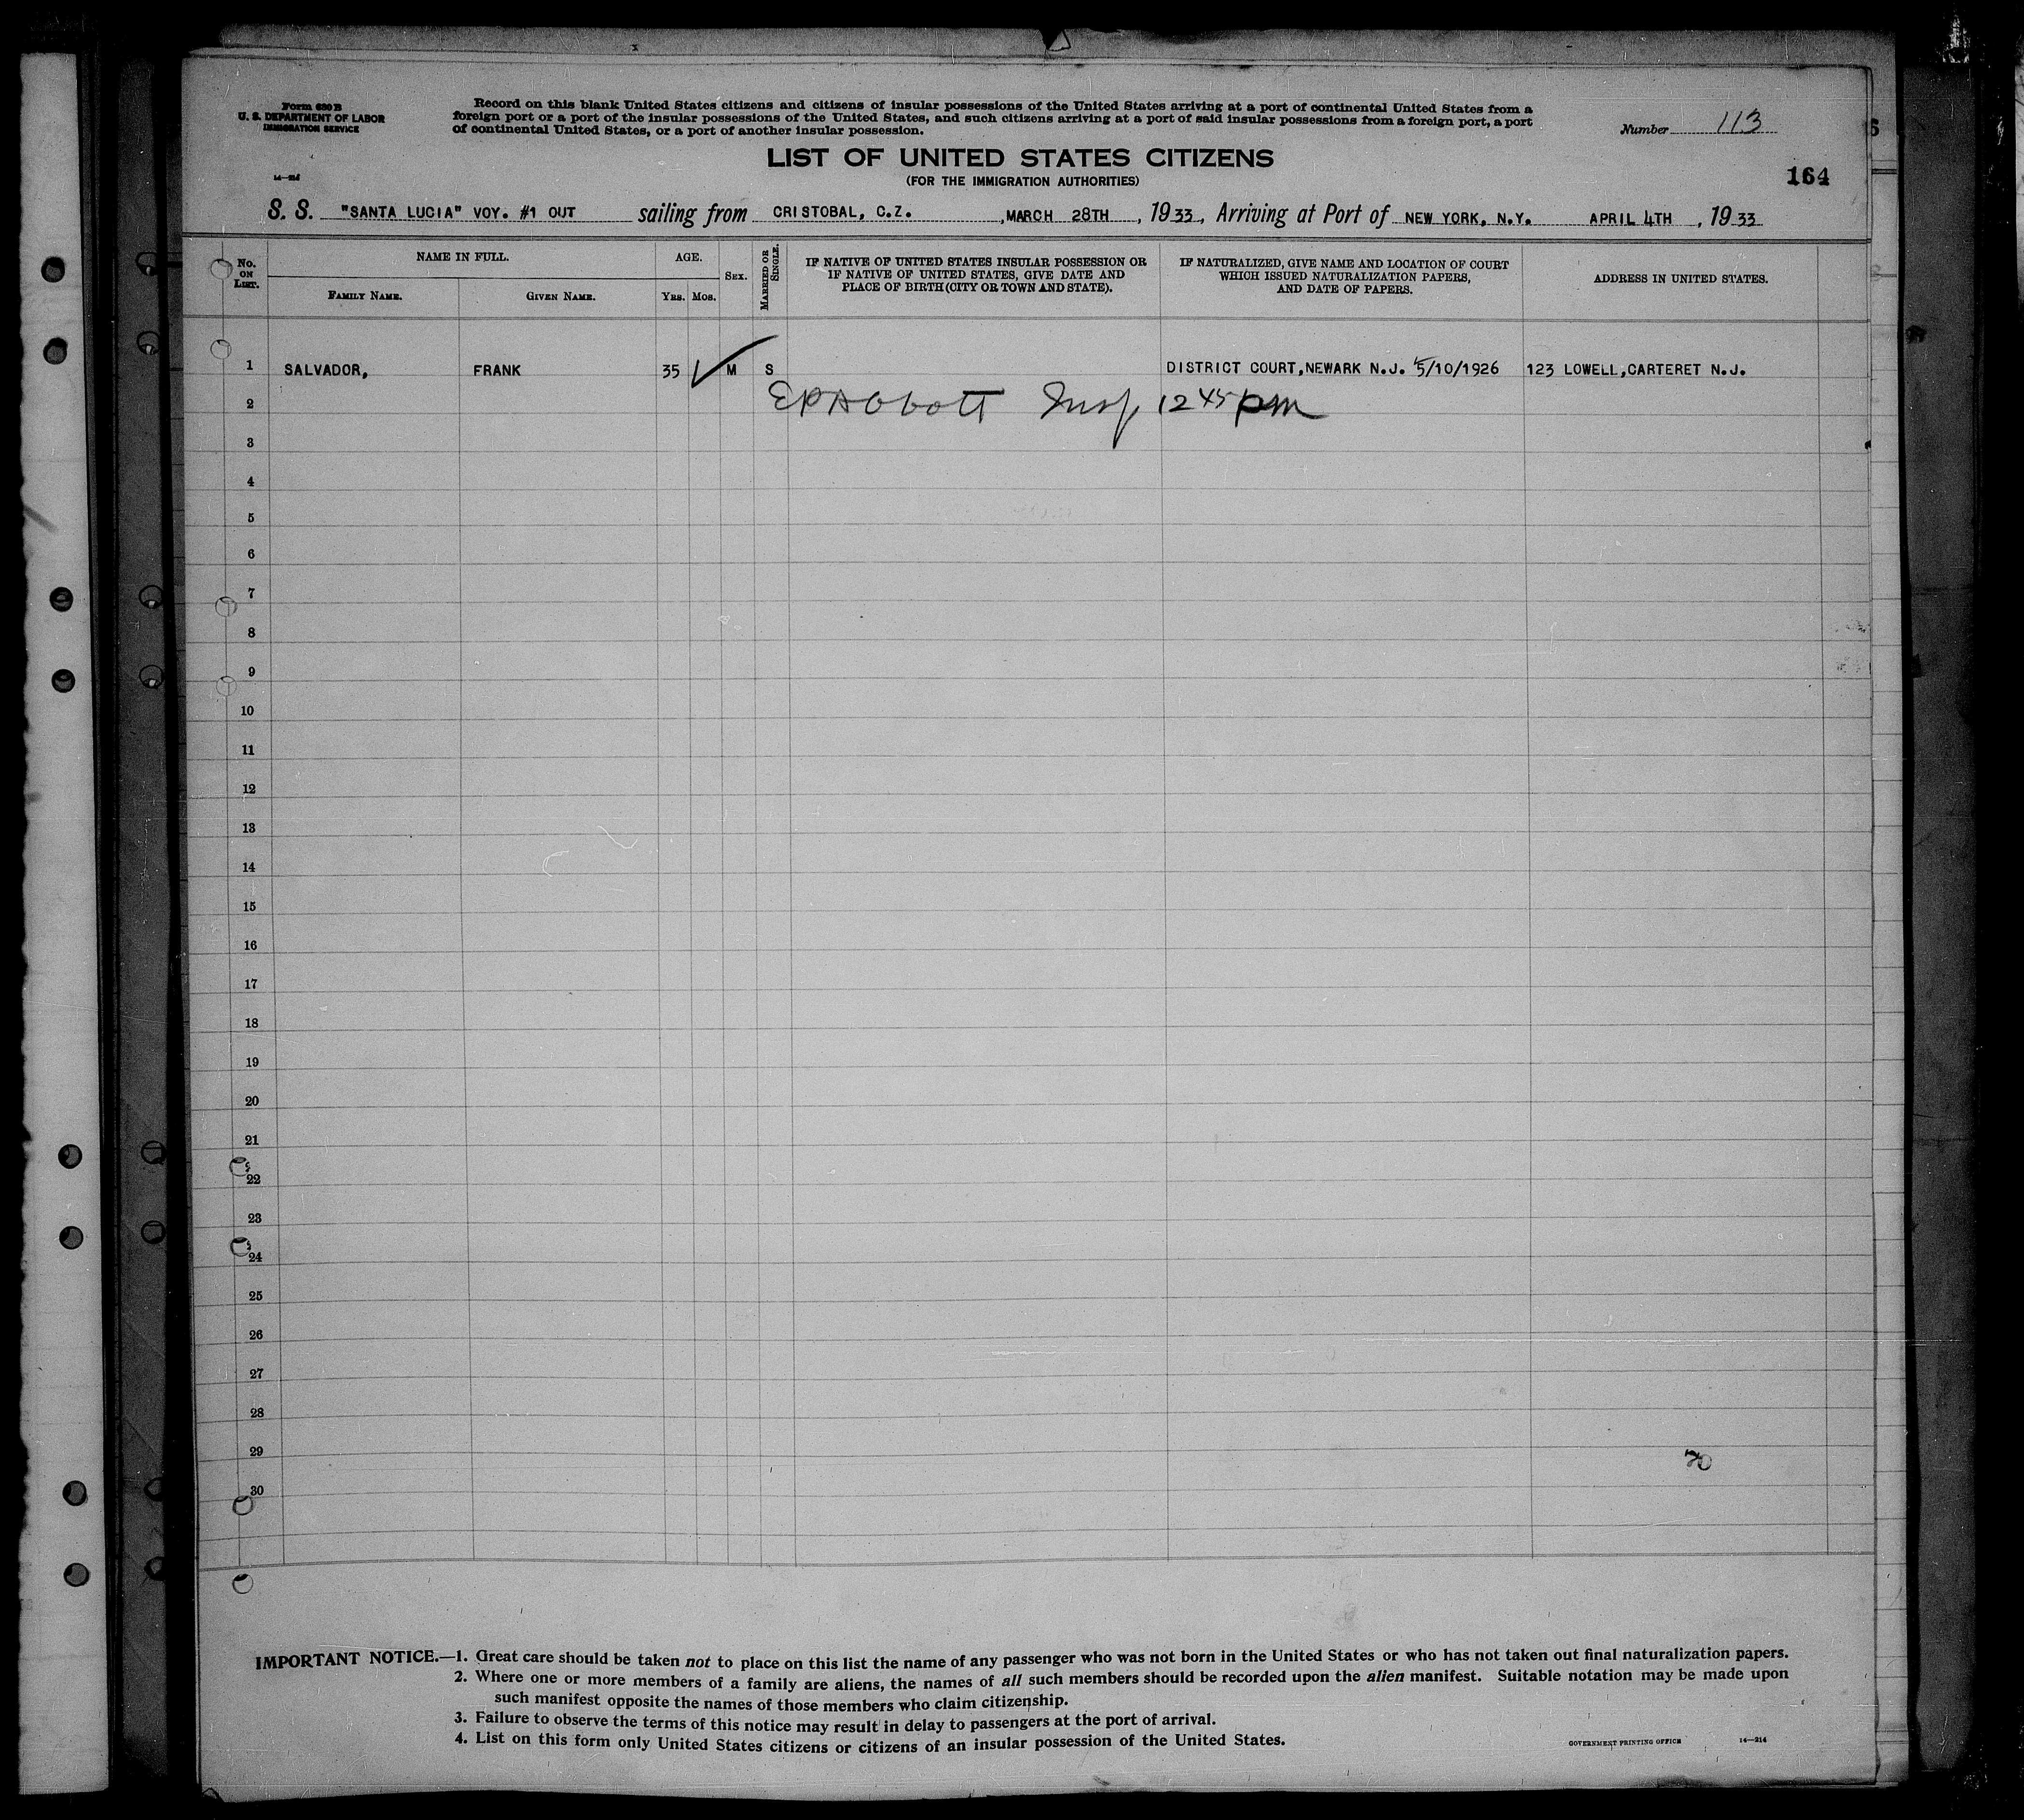 Form 630 B
U. S. DEPARTMENT OF LABOR
IMMIGRATION SERVICE
Record on this blank United States citizens and citizens of insular possessions of the United States arriving at a port of continental United States from a
foreign port or a port of the insular possessions of the United States, and such citizens arriving at a port of said insular possessions from a foreign port, a port
of continental United States, or a port of another insular possession.
Number 113
LIST OF UNITED STATES CITIZENS
(FOR THE IMMIGRATION AUTHORITIES)
164
S. S. "SANTA LUCIA" VOY. #1 OUT sailing from CRISTOBAL, C.Z. , MARCH 28TH , 1933, Arriving at Port of NEW YORK, N.Y. APRIL 4TH , 1933
No. ON LIST.
NAME IN FULL.
FAMILY NAME.
GIVEN NAME.
AGE.
YRS. MOS.
SEX.
MARRIED OR SINGLE.
IF NATIVE OF UNITED STATES INSULAR POSSESSION OR
IF NATIVE OF UNITED STATES, GIVE DATE AND
PLACE OF BIRTH (CITY OR TOWN AND STATE).
IF NATURALIZED, GIVE NAME AND LOCATION OF COURT
WHICH ISSUED NATURALIZATION PAPERS,
AND DATE OF PAPERS.
ADDRESS IN UNITED STATES.
1 SALVADOR, FRANK 35 M S DISTRICT COURT, NEWARK N.J. 5/10/1926 123 LOWELL, CARTERET N.J.
2 EPAbbott Insp 12 45 pm
3
4
5
6
7
8
9
10
11
12
13
14
15
16
17
18
19
20
21
22
23
24
25
26
27
28
29
30
IMPORTANT NOTICE.—1. Great care should be taken not to place on this list the name of any passenger who was not born in the United States or who has not taken out final naturalization papers.
2. Where one or more members of a family are aliens, the names of all such members should be recorded upon the alien manifest. Suitable notation may be made upon
such manifest opposite the names of those members who claim citizenship.
3. Failure to observe the terms of this notice may result in delay to passengers at the port of arrival.
4. List on this form only United States citizens or citizens of an insular possession of the United States.
GOVERNMENT PRINTING OFFICE 14—214